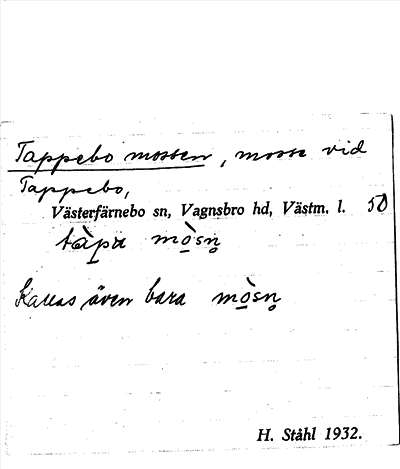 Tappebo mossen, mosse vid
Tappebo,
Västerfärnebo sn, Vagnsbro hd, Västm. l. 50
tàpu mò̱sn̥
Kallas även bara mò̱sn̥
H. Ståhl 1932.